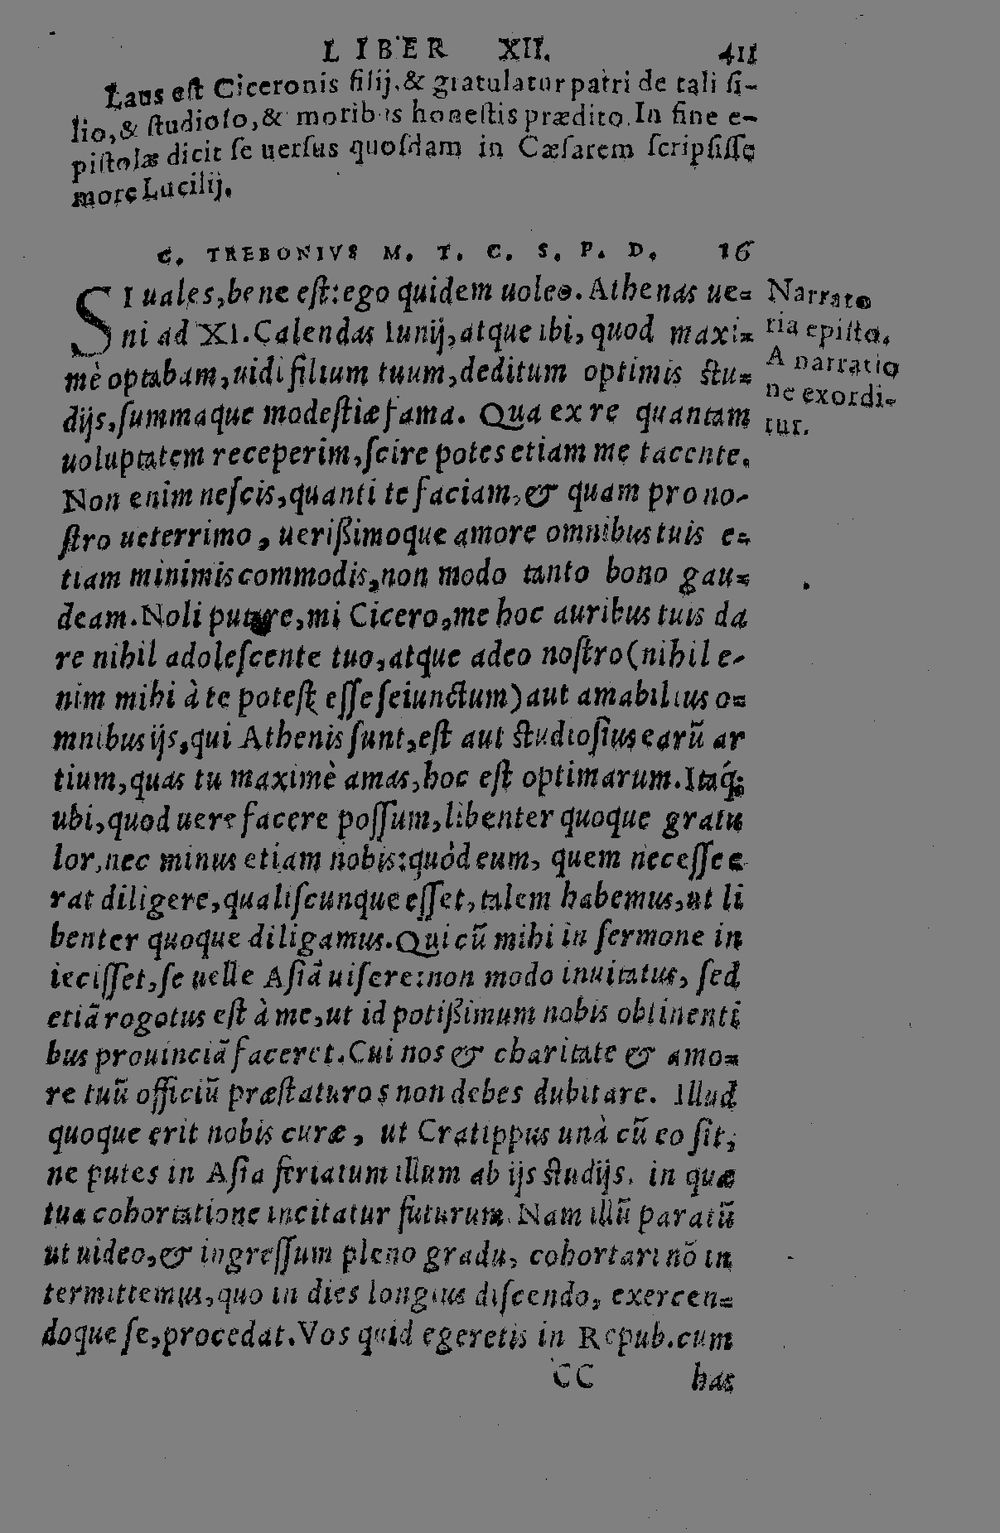 LIBER XII. 411
Laus est Ciceronis filij, & gratulatur patri de tali fi-
lio, & studioso, & moribus honestis prædito. In fine e-
pistolæ dicit se uersus quosdam in Cæsarem scripsisse
more Lucilij.
C. TREBONIVS M. T. C. S. P. D. 16
SI uales, bene est: ego quidem uoleo. Athenas ue-
ni ad XI. Calendas Iunij, atque ibi, quod maxi-
mè optabam, uidi filium tuum, deditum optimis stu-
dijs, summaque modestiæ fama. Qua ex re quantam
uoluptatem receperim, scire potes etiam me tacente.
Non enim nescis, quanti te faciam, & quam pro no-
stro ueterrimo, uerißimoque amore omnibus tuis e-
tiam minimis commodis, non modo tanto bono gau-
deam. Noli putare, mi Cicero, me hoc auribus tuis da
re nihil adolescente tuo, atque adeo nostro (nihil e-
nim mihi à te potest esse seiunctum) aut amabilius o-
mnibus ijs, qui Athenis sunt, est aut studiosius earū ar
tium, quas tu maximè amas, hoc est optimarum. Itaq́;
ubi, quod uere facere possum, libenter quoque gratu
lor, nec minus etiam nobis: quòd eum, quem necesse e
rat diligere, qualiscunque esset, talem habemus, ut li
benter quoque diligamus. Qui cū mihi in sermone in
iecisset, se uelle Asiā uisere: non modo inuitatus, sed
etiā rogotus est à me, ut id potißimum nobis obtinenti
bus prouinciā faceret. Cui nos & charitate & amo-
re tuū officiū præstaturos non debes dubitare. Illud
quoque erit nobis curæ, ut Cratippus unà cū eo sit,
ne putes in Asia feriatum illum ab ijs studijs, in quæ
tua cohortatione incitatur futurum. Nam illū paratū
ut uideo, & ingressum pleno gradu, cohortari nō in
termittemus, quo in dies longius discendo, exercen-
doque se, procedat. Vos quid egeretis in Repub. cum
CC has
Narrato
ria episto.
A narratio
ne exordi-
tur.